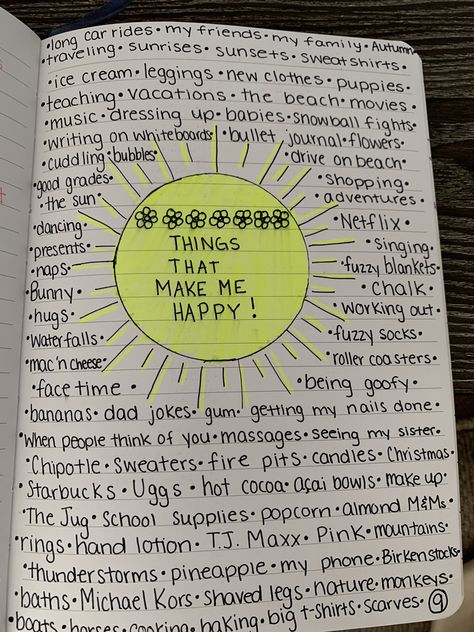 •long car rides • my friends • my family • Autumn
•traveling • sunrises • sunsets • sweatshirts •
•ice cream • leggings • new clothes • puppies •
•teaching • vacations • the beach • movies •
•music • dressing up • babies • snowball fights
•writing on whiteboards • bullet journal • flowers •
•cuddling • bubbles •
•drive on beach •
•good grades •
•shopping •
•the sun •
•adventures •
•dancing •
•Netflix •
•presents •
•singing •
•naps •
•fuzzy blankets •
•Bunny •
•chalk •
•hugs •
•working out •
•waterfalls •
•fuzzy socks •
•mac 'n cheese •
•roller coasters •
THINGS
THAT
MAKE ME
HAPPY!
•face time •
•being goofy •
•bananas • dad jokes • gum • getting my nails done •
•when people think of you • massages • seeing my sister •
•Chipotle • sweaters • fire pits • candles • Christmas •
•Starbucks • Uggs • hot cocoa • açai bowls • make up •
•The Jug • School supplies • popcorn • almond M&Ms •
•rings • hand lotion • T.J. Maxx • Pink • mountains •
•thunderstorms • pineapple • my phone • Birkenstocks •
•baths • Michael Kors • shaved legs • nature • monkeys •
•boats • horses • cooking • baking • big t-shirts • scarves • 9